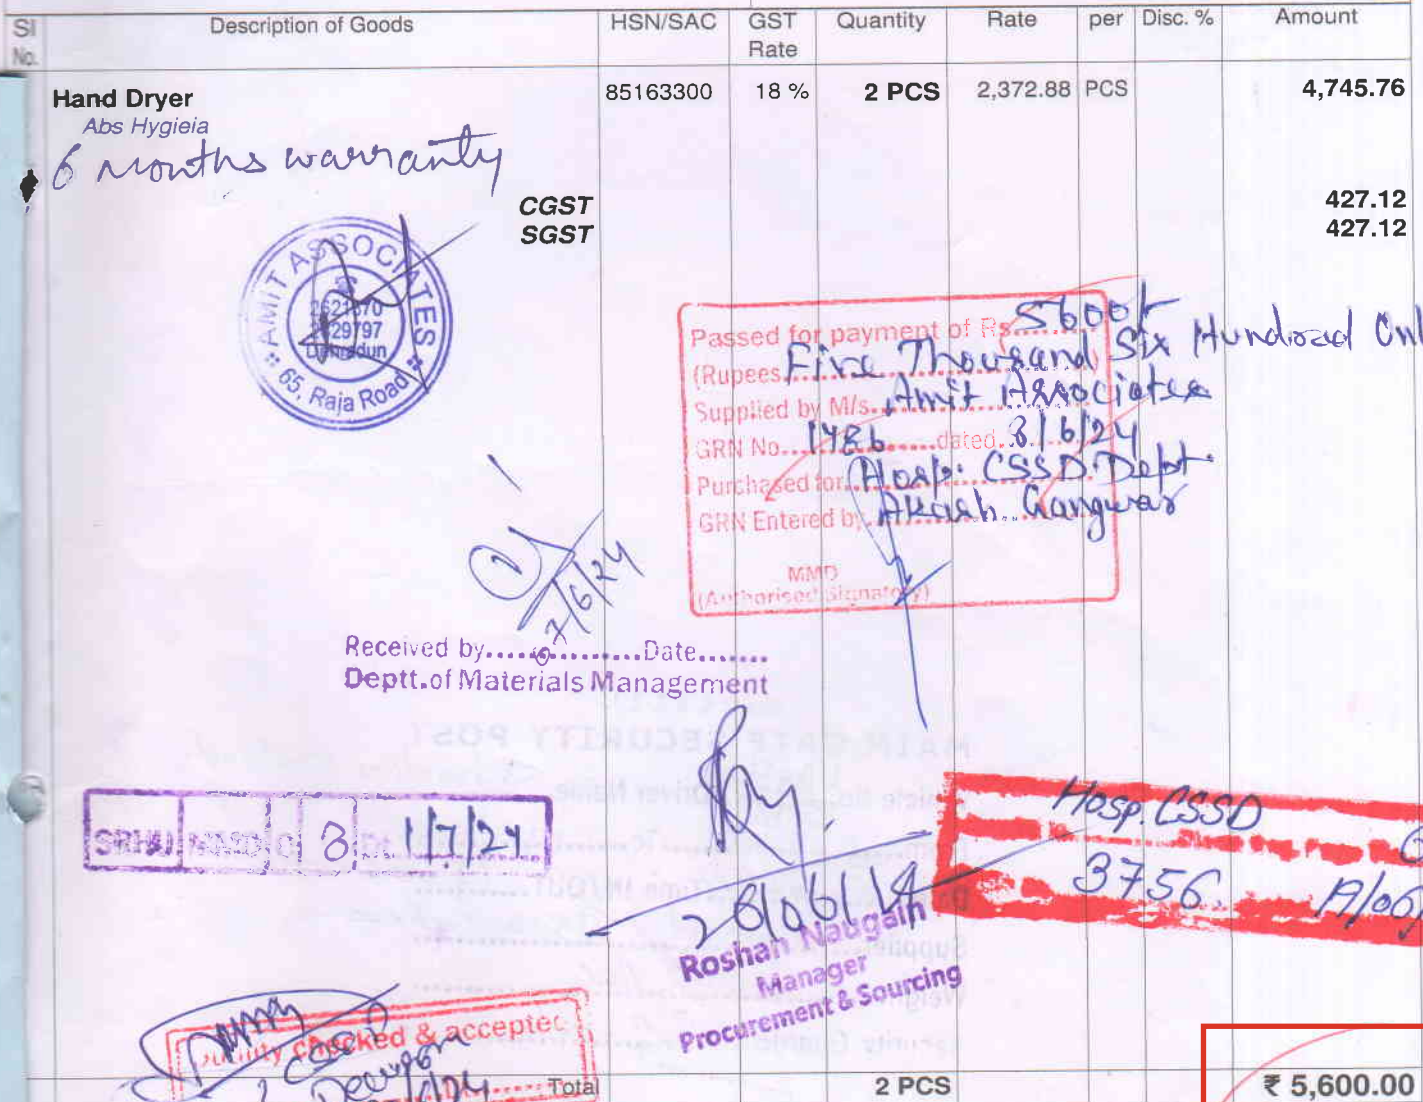 SI No. Description of Goods HSN/SAC GST Rate Quantity Rate per Disc. % Amount
Hand Dryer 85163300 18 % 2 PCS 2,372.88 PCS 4,745.76
Abs Hygieia
6 months warranty
CGST 427.12
SGST 427.12
AMIT ASSOCIATES
2629797
Dehradun
65, Raja Road
Passed for payment of Rs. 5600/-
(Rupees Five Thousand Six Hundred
Supplied by M/s. Amit Associates
GRN No. 1486 dated 8/6/24
Purchased for Hosp. CSSD Dept.
GRN Entered by Akash Gangwar
MMD
(Authorised Signatory)
7/6/24
Received by Date
Deptt. of Materials Management
SRHU MMD 8 1/7/24
Hosp. CSSD
3756
Roshan Naugain
Manager
Procurement & Sourcing
checked & accepted
CSSD
Total 2 PCS ₹ 5,600.00